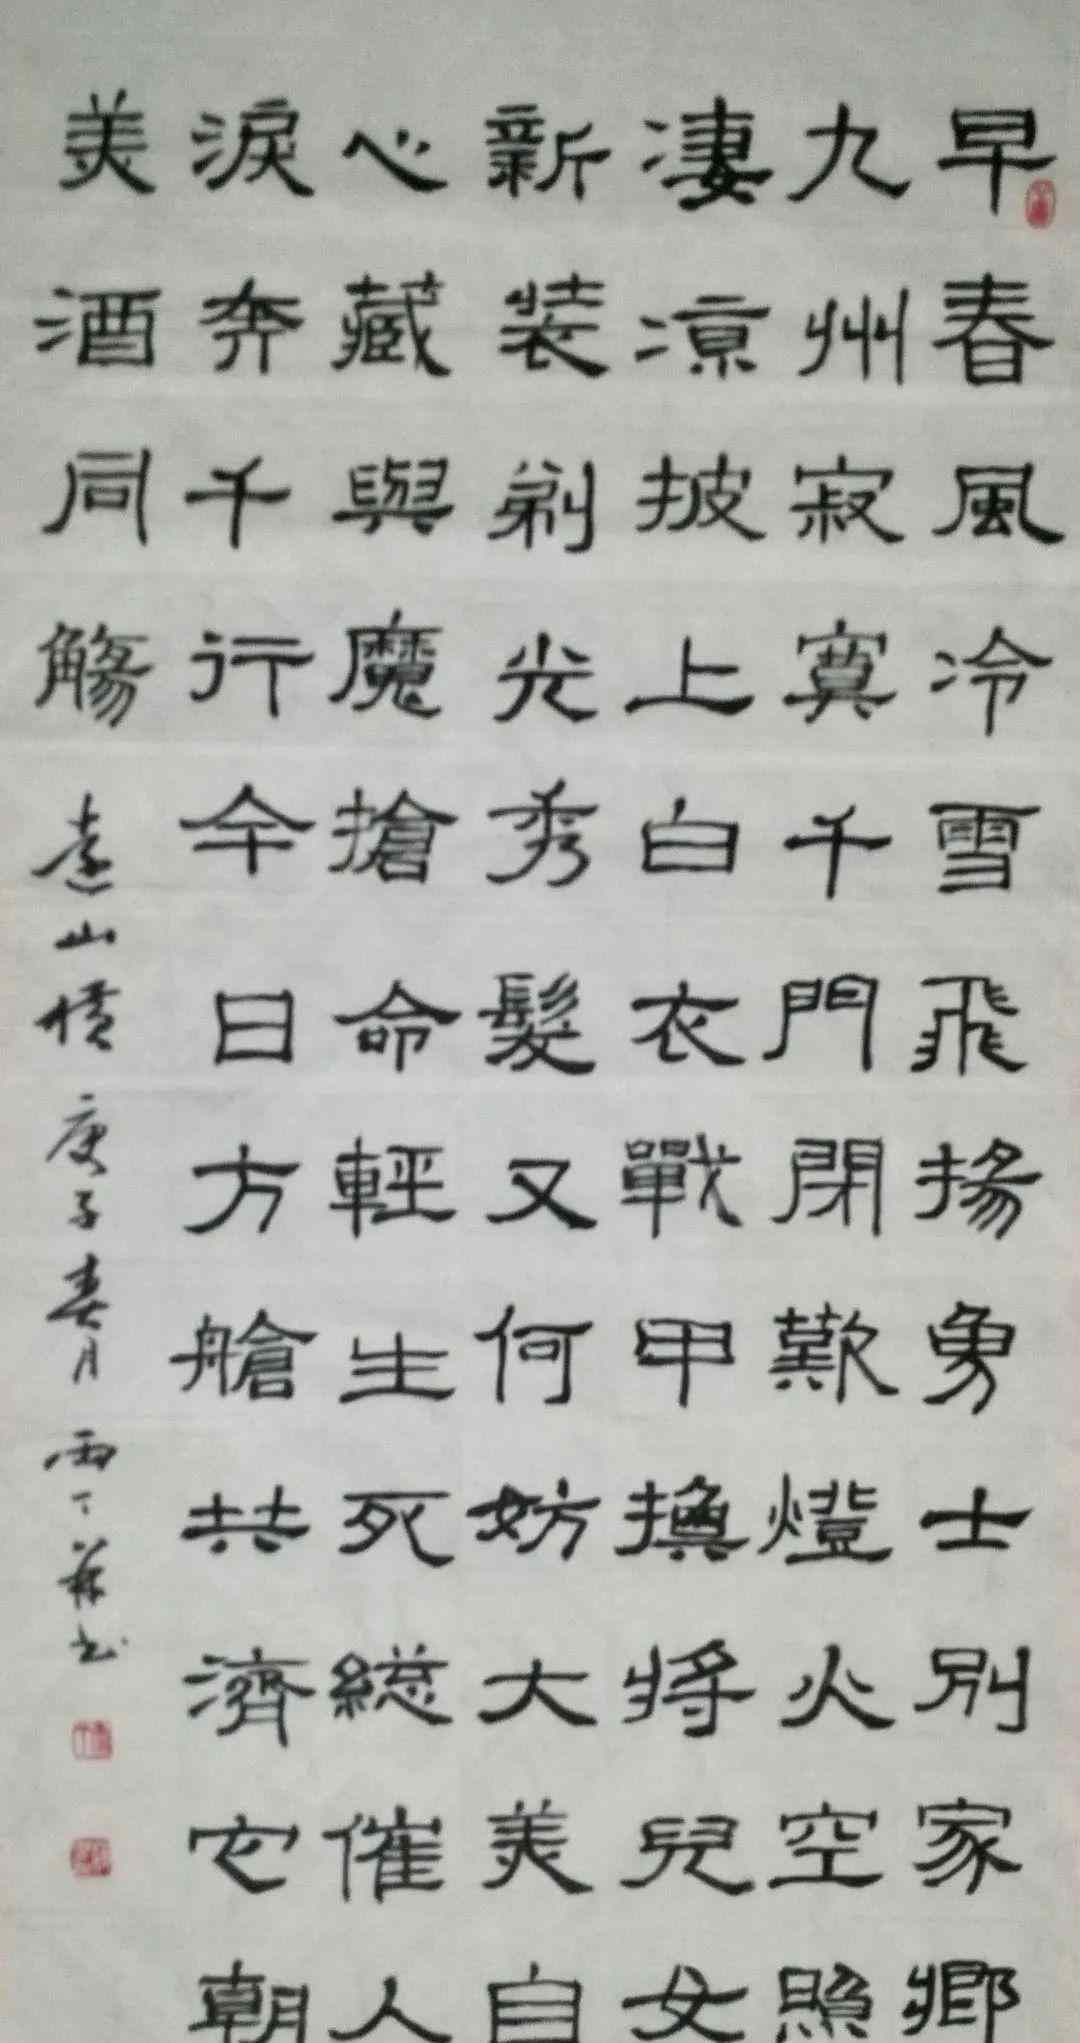 早春風冷雪飛揚勇士別家鄉
九州寂寞千門閉歎燈火空照
淒涼披上白衣戰甲換將兒女
新裝剃光秀髮又何妨大美自
心藏與魔搶命輕生死總催人
淚奔千行今日方艙共濟它朝
美酒同觴
遠山橫
庚子春月